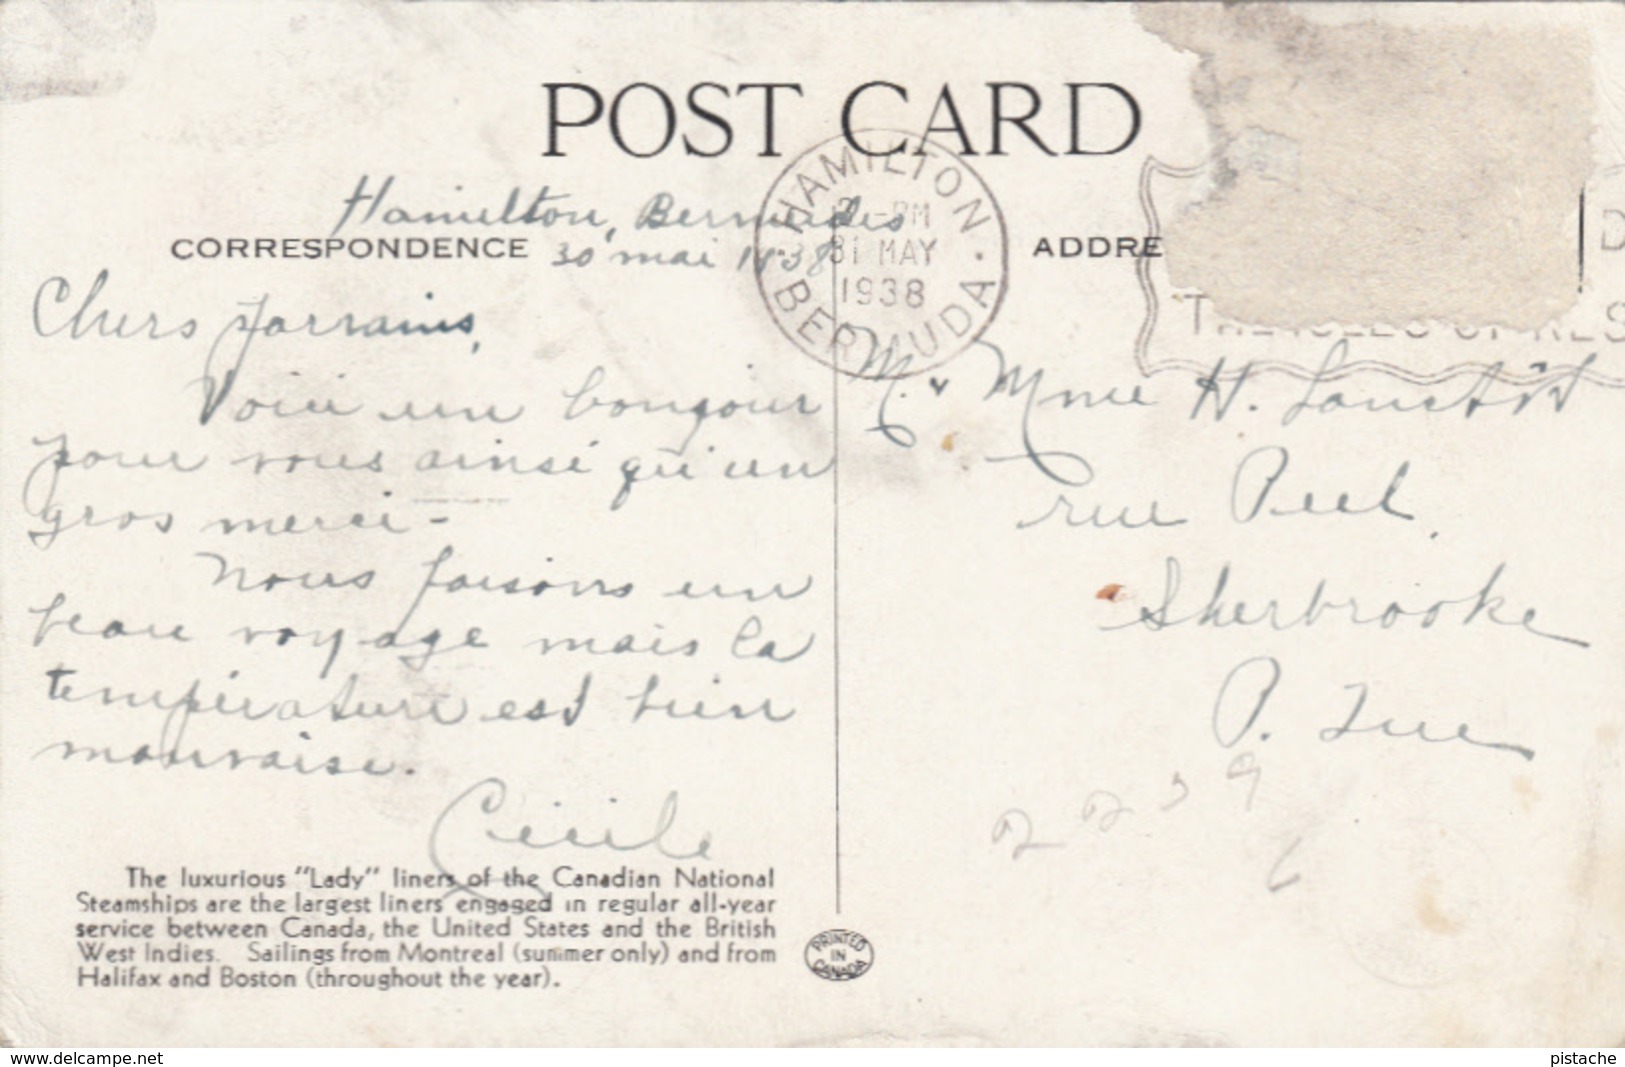 POST CARD
HAMILTON
PM
31 MAY
1938
BERMUDA
Hamilton, Bermudes
CORRESPONDENCE
30 mai 1938
ADDRE
D
THE ISLES OF RES
Chers Parrains,
Voici un bonjour
pour vous ainsi qu'un
gros merci -
Nous faisons un
beau voyage mais la
température est bien
mauvaise.
Cécile
M. & Mme H.
rue Peel,
Sherbrooke
P. Que
2239
6
The luxurious "Lady" liners of the Canadian National
Steamships are the largest liners engaged in regular all-year
service between Canada, the United States and the British
West Indies. Sailings from Montreal (summer only) and from
Halifax and Boston (throughout the year).
PRINTED
IN
CANADA
www.delcampe.net
pistache